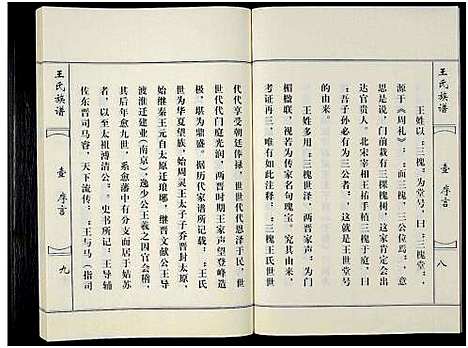 王氏族谱
壹 序言
八
王姓以：『三槐』为堂号，曰：『三槐堂』，
源于《周礼》：『面三槐，三公位焉』，意
思是说，门前栽有三棵槐树，这家肯定会出
达官贵人。北宋宰相王祐手植三槐王庭，曰
：『吾子孙必有为三公者』，这就是王世堂号
的由来。
王姓多用：『三槐世泽，两晋家声』为门
楣楹联，视若为传家名句瑰宝。究其由来，
考证再三，唯有如此注释：『三槐王氏世世
代代享受朝廷俸禄，世世代代恩泽于民，世
世代代门庭光润，两晋时期王家声望登峰造
极，堪为鼎盛。据历代家谱所记载：『王氏
世为华夏望族，始周灵王太子子乔晋封太原，
始继秦王元自太原迁琅琊，继晋文献公王导
渡淮迁建业（南京），逸少公王羲之四官会稽，
其后年愈九世，系愈藩中有分而居于姑苏
者，以至太祖溥清公』。史书所记：王导辅
佐东晋司马睿，天下流传：『王与马（指司
王氏族谱
壹 序言
九